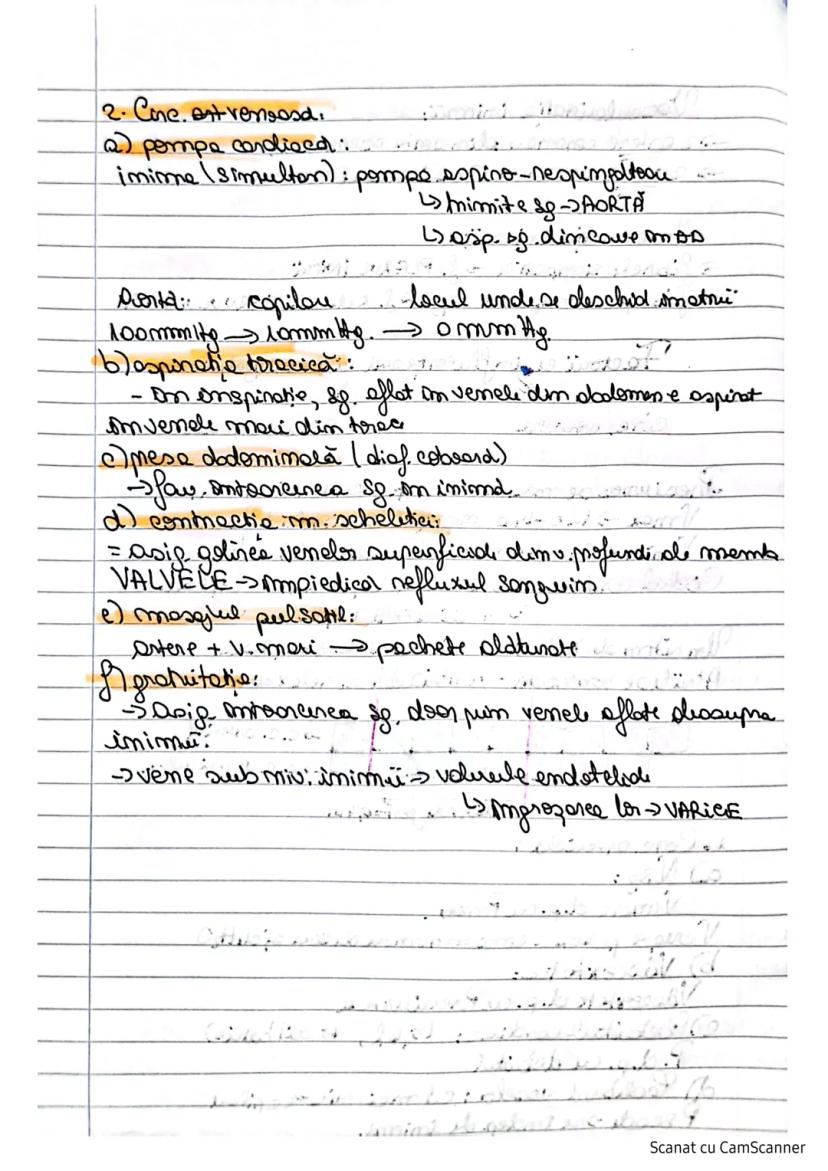 2. Circ. venoasă:
a) pompa cardiacă:
inima (simultan): pompă aspiro-respingătoare
↳ trimite sg → AORTĂ
↳ asp. sg. din cave în AD
Aortă: capilar locul unde se deschid în atrii
100mmHg → 10mmHg → 0mmHg.
b) aspirația toracică:
- în inspirație, sg. aflat în venele din abdomen e aspirat
în venele mari din torac
c) presa abdominală (diaf. coboară)
→ fav. întoarcerea sg. în inimă.
d) contracția m. scheletici:
= asig. golirea venelor superficiale din v. profundi ale memb
VALVELE → împiedică refluxul sanguin.
e) masajul pulsatil:
artere + v. mari → pachete alăturate
f) gravitația:
→ Asig. întoarcerea sg. doar prin venele aflate deasupra
inimii.
→ vene sub niv. inimii → valvulele endoteliale
↳ îngroșarea lor → VARICE
Scanat cu CamScanner